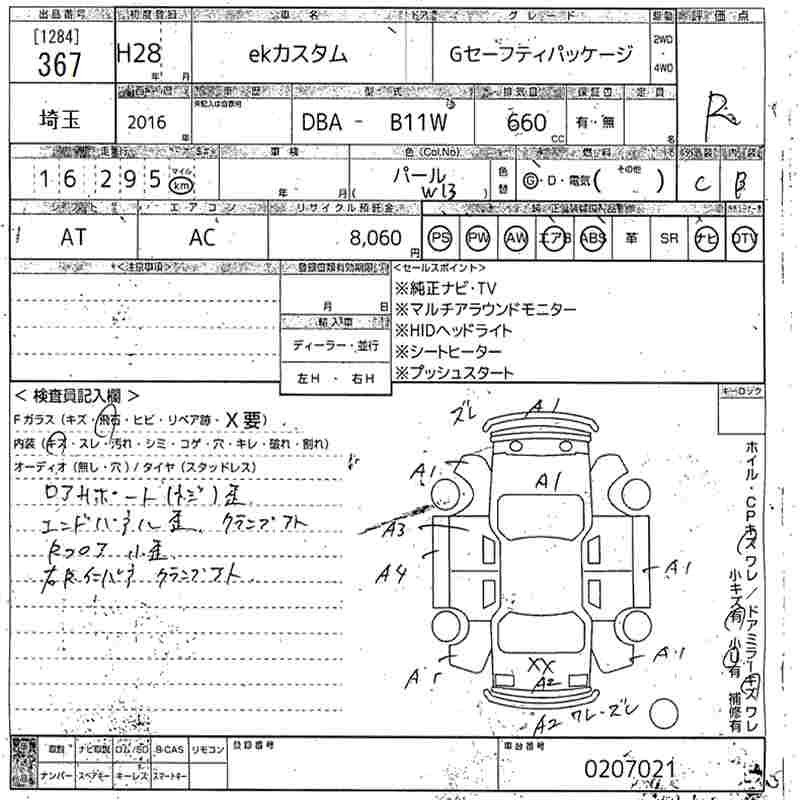 出品番号 初度登録 車名 ドア グレード 駆動 評価点
[1284]
367 H28 年 月 ekカスタム Gセーフティパッケージ 2WD 4WD
型式 排気量 定員
埼玉 2016 年 DBA - B11W 660 CC 有・無 名
車検 色(Col.No) 燃料 外装 内装
16 295 マイル km 年 月 パール W13 色替 G・D・電気( その他 ) C B
シフト エアコン リサイクル預託金
AT AC 8,060円 PS PW AW エアB ABS 革 SR ナビ DTV
<注意事項> 登録書類有効期限 <セールスポイント>
月 日
※純正ナビ・TV
※マルチアラウンドモニター
輸入車
※HIDヘッドライト
ディーラー・並行
※シートヒーター
左H ・ 右H
※プッシュスタート
< 検査員記入欄 > キーロック
Fガラス(キズ・飛石・ヒビ・リペア跡・X要)
内装(キズ・スレ・汚れ・シミ・コゲ・穴・キレ・破れ・割れ)
オーディオ(無し・穴)/タイヤ(スタッドレス)
エンドパネル歪、クランプアト
Rフロア 小歪
クランプアト
ズレ A1
A1
A1
A3
A4
A1
A1
XX
A2
A2 ワレ・ズレ
ホイル・CPキズワレ/ドアミラーキズワレ
小キズ有 小U有 補修有
取説 ナビ取説 ロム/SD B-CAS リモコン 登録番号 車台番号
ナンバー スペアキー キーレス スマートキー
0207021